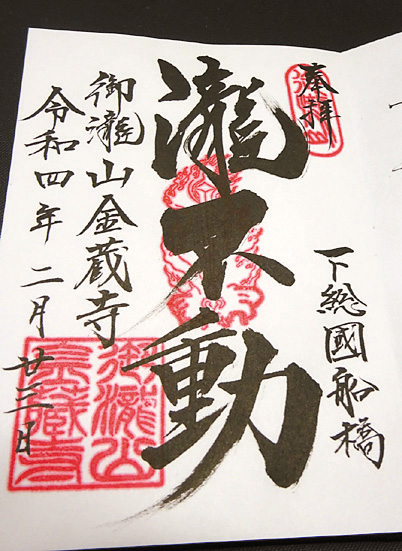 奉拝
下総國船橋
瀧不動
御瀧山金蔵寺
令和四年二月廿三日
御瀧山
金蔵寺